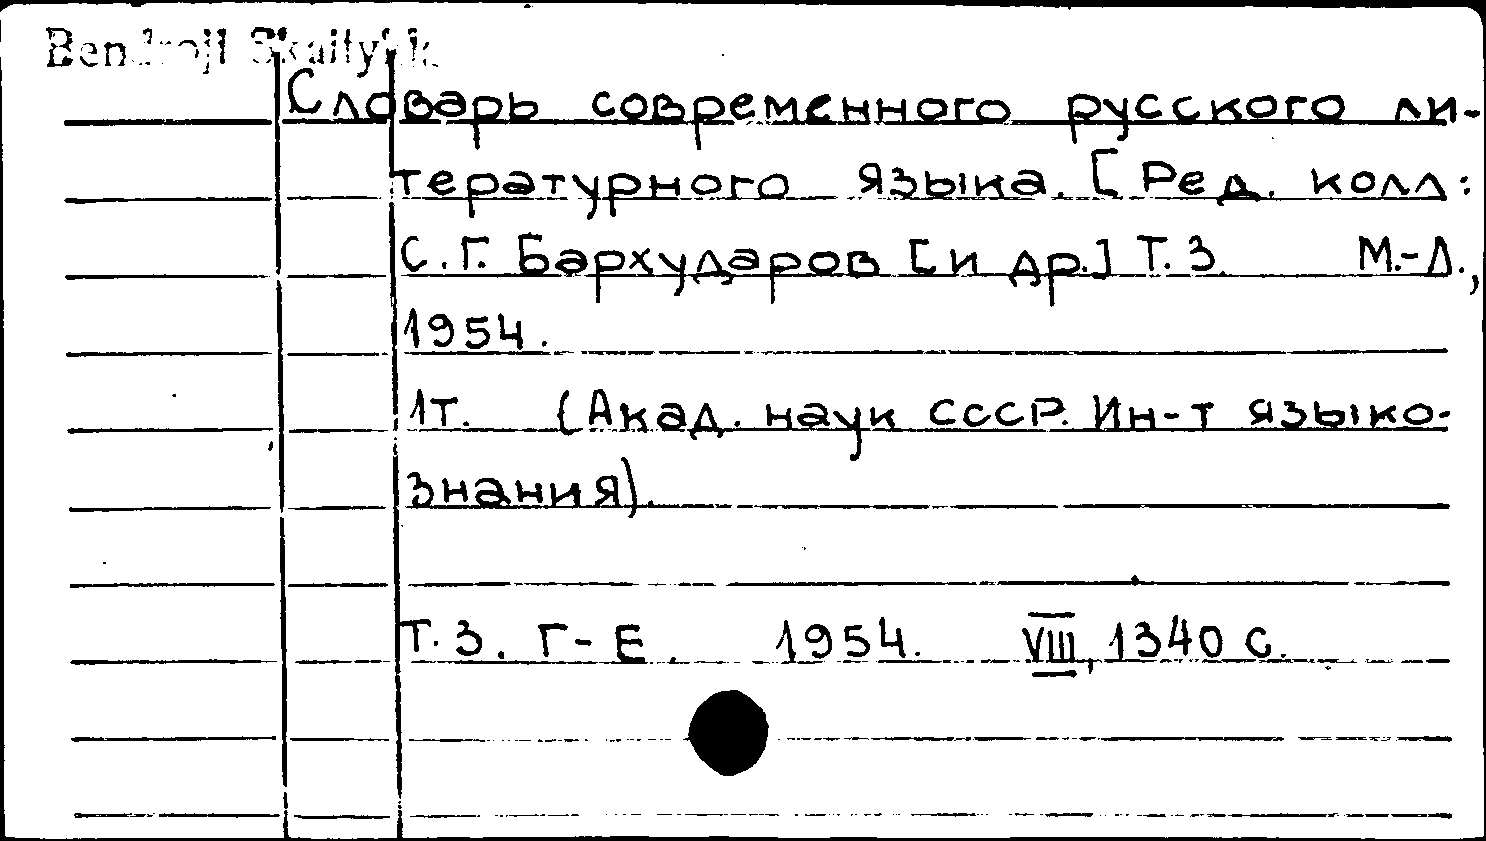 Bendroji Skaitykla
Словарь современного русского ли-
тературного языка. [Ред. колл:
С.Г. Бархударов [и др.] Т. 3. М.-Л.,
1954.
1т. (Акад. наук СССР. Ин-т языко-
знания).
Т. 3. Г-Е. 1954. VIII, 1340 с.